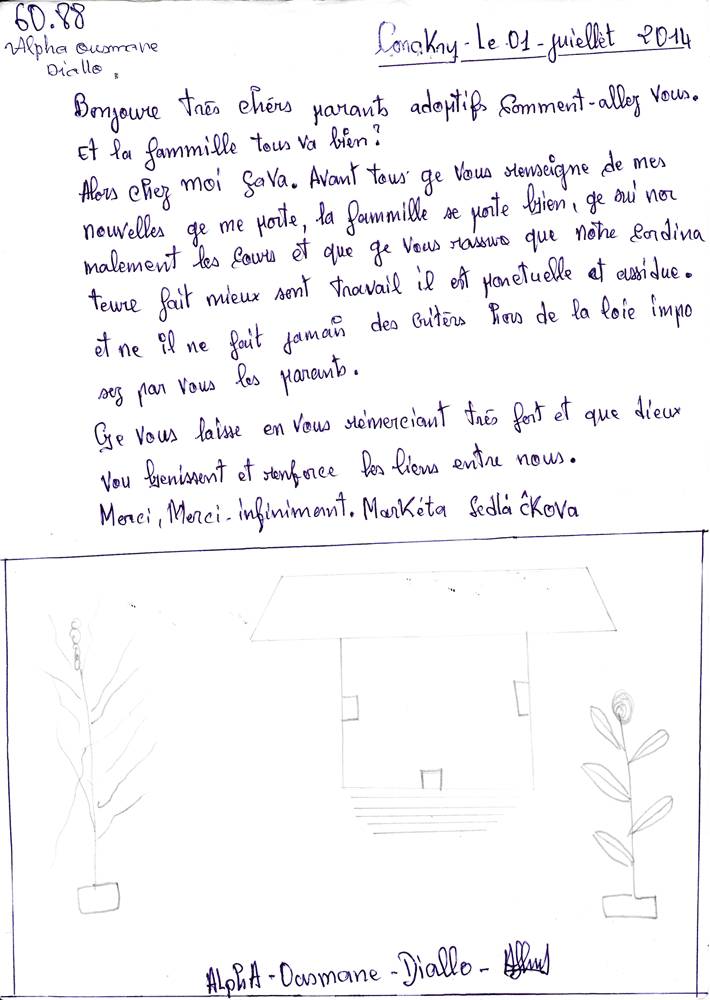 60.88
Alpha Ousmane
Diallo.
Conakry - Le 01 - juiellet 2014
Bonjoure trés chérs parants adoptifs Comment-allez Vous.
Et la fammille tous va bien?
Alors chez moi SaVa. Avant tous ge Vous renseigne de mes
nouvelles ge me porte, la fammille se porte bien, ge sui nor
malement les Cours et que ge Vous rassure que notre Cordina
teure fait mieux sont travail il est ponctuelle et assidue.
et ne il ne fait jamais des Critèrs Hors de la loie impo
sez par Vous les parants.
Ge Vous laisse en Vous rémerciant trés fort et que dieux
Vou benissent et renforce les liens entre nous.
Merci, Merci - infiniment. Markéta Sedláčkova
AlphA - Ousmane - Diallo -